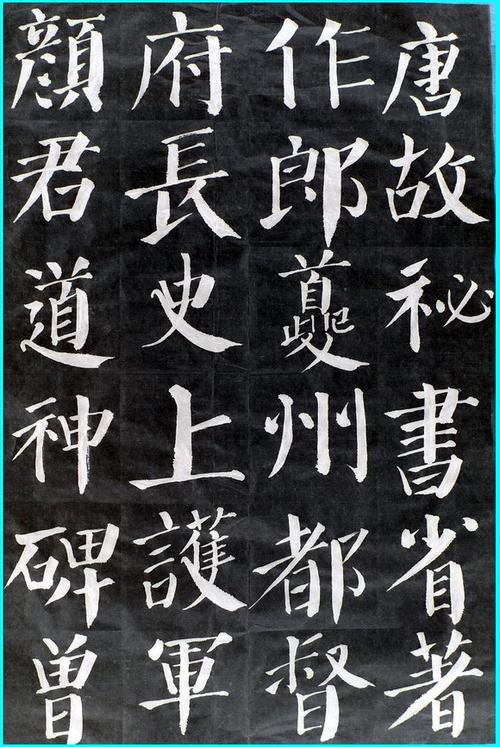 唐故祕書省著
作郎夔州都督
府長史上護軍
顏君道神碑曾